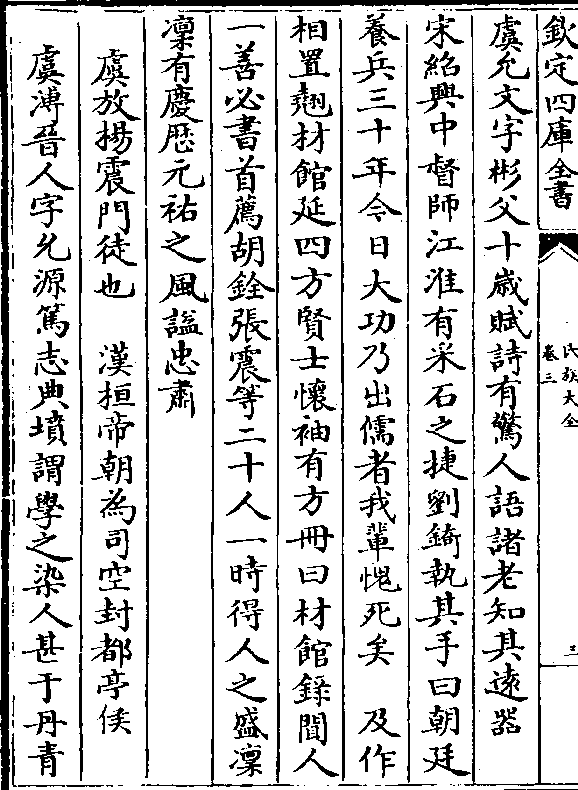 欽定四庫全書
氏族大全
卷三
三
虞允文字彬父十歲賦詩有驚人語諸老知其遠器
宋紹興中督師江淮有采石之捷劉錡執其手曰朝廷
養兵三十年今日大功乃出儒者我輩愧死矣　及作
相置翹材館延四方賢士懷袖有方冊曰材館錄聞人
一善必書首薦胡銓張震等二十人一時得人之盛凜
凜有慶歷元祐之風諡忠肅
虞放楊震門徒也　漢桓帝朝為司空封都亭侯
虞溥晉人字允源篤志典墳謂學之染人甚于丹青